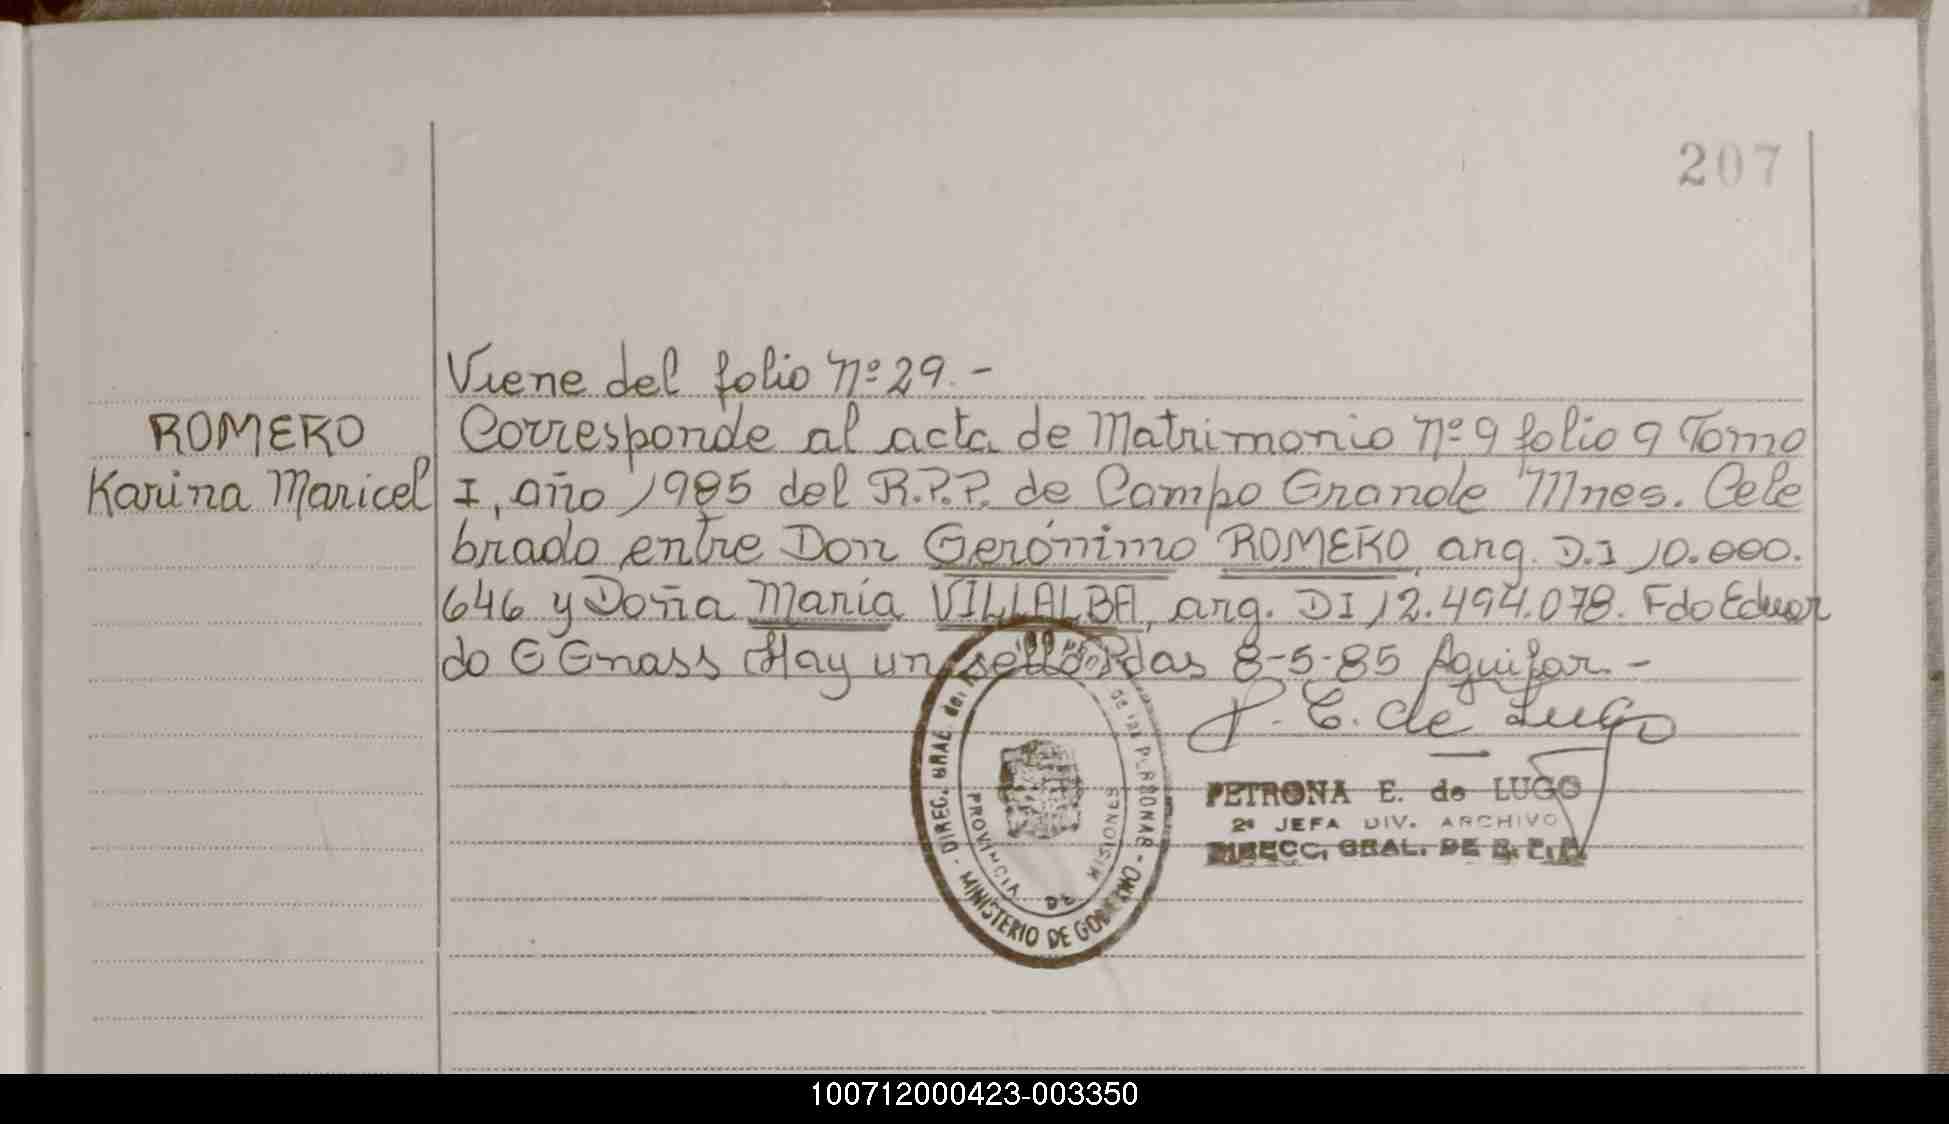 207
Viene del folio Nº 29.-
ROMERO
Karina Maricel
Corresponde al acta de Matrimonio Nº 9 folio 9 Tomo
I, año 1985 del R.P.P. de Campo Grande Mnes. Cele
brado entre Don Gerónimo ROMERO arg. D.I 10.000.
646 y Doña María VILLALBA, arg. DI 12.494.078. Fdo Eduar
do G Gnass Hay un sello Pdas 8-5-85 Aguilar.-
P. E. de Lugo
PETRONA E. de LUGO
2ª JEFA DIV. ARCHIVO
DIRECC, GRAL. DE R. P. P.
DIREC. GRAL del DE las PERSONAS
- MINISTERIO DE GOBIERNO -
PROVINCIA DE MISIONES
100712000423-003350